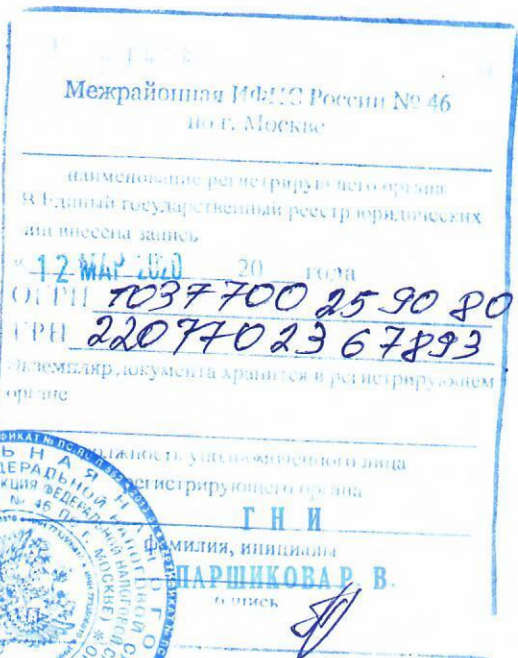 Межрайонная ИФНС России № 46
по г. Москве
наименование регистрирующего органа
В Единый государственный реестр юридических
лиц внесена запись
« 12 МАР 2020 20 года
ОГРН 1037700259080
ГРН 2207702367893
Экземпляр документа хранится в регистрирующем
органе
должность уполномоченного лица
регистрирующего органа
ГНИ
фамилия, инициалы
ПАРШИКОВА Р. В.
подпись